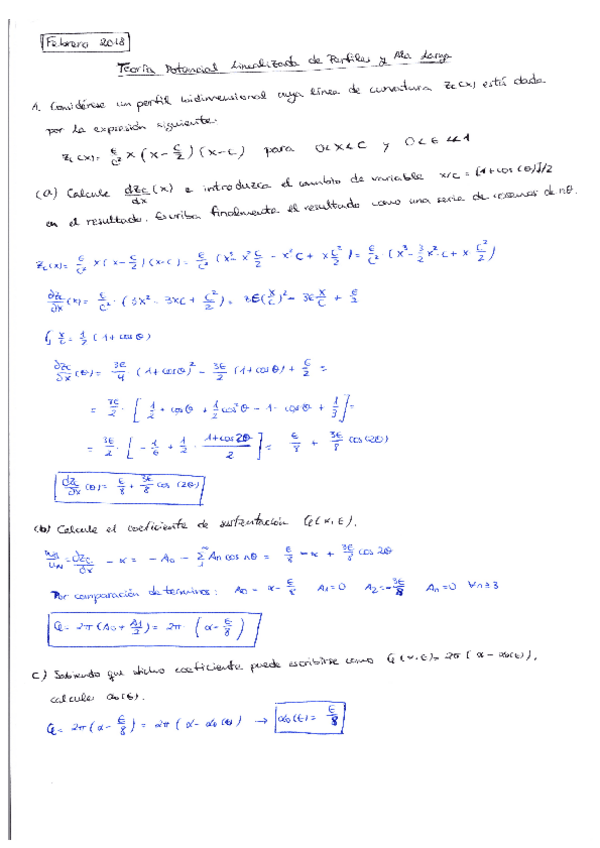 Febrero 2018
Teoría Potencial Linealizada de Perfiles y Ala Larga
1. Considérese un perfil bidimensional cuya línea de curvatura Zc(x) está dada
por la expresión siguiente:
Zc(x)= ε/c² x (x - c/2) (x-c) para 0<x<c y 0<ε<<1
(a) Calcule dZc/dx (x) e introduzca el cambio de variable x/c = [1+cos(θ)]/2
en el resultado. Escriba finalmente el resultado como una serie de cosenos de nθ.
Zc(x)= ε/c² x(x - c/2)(x-c) = ε/c² (x³ - x²c/2 - x²c + xc²/2) = ε/c² (x³ - 3/2 x²c + x c²/2)
∂Zc/∂x (x)= ε/c² · (3x² - 3xc + c²/2) = 3ε(x/c)² - 3ε x/c + ε/2
x/c = 1/2 (1+cosθ)
∂Zc/∂x (θ)= 3ε/4 (1+cosθ)² - 3ε/2 (1+cosθ) + ε/2 =
= 3ε/2 · [ 1/2 + cosθ + 1/2 cos²θ - 1 - cosθ + 1/3 ] =
= 3ε/2 · [ - 1/6 + 1/2 · (1+cos2θ)/2 ] = ε/8 + 3ε/8 cos(2θ)
dZc/dx (θ)= ε/8 + 3ε/8 cos(2θ)
(b) Calcule el coeficiente de sustentación Cl(α,ε).
= dZc/dx - α = - A0 - Σ An cos nθ = ε/8 - α + 3ε/8 cos 2θ
Por comparación de términos: A0 = α - ε/8 A1=0 A2=-3ε/8 An=0 ∀n≥3
Cl= 2π(A0 + A1/2) = 2π · (α - ε/8)
c) Sabiendo que dicho coeficiente puede escribirse como Cl(α,ε)= 2π(α - α0(ε)),
calcule α0(ε).
Cl= 2π(α - ε/8) = 2π(α - α0(ε)) → α0(ε)= ε/8